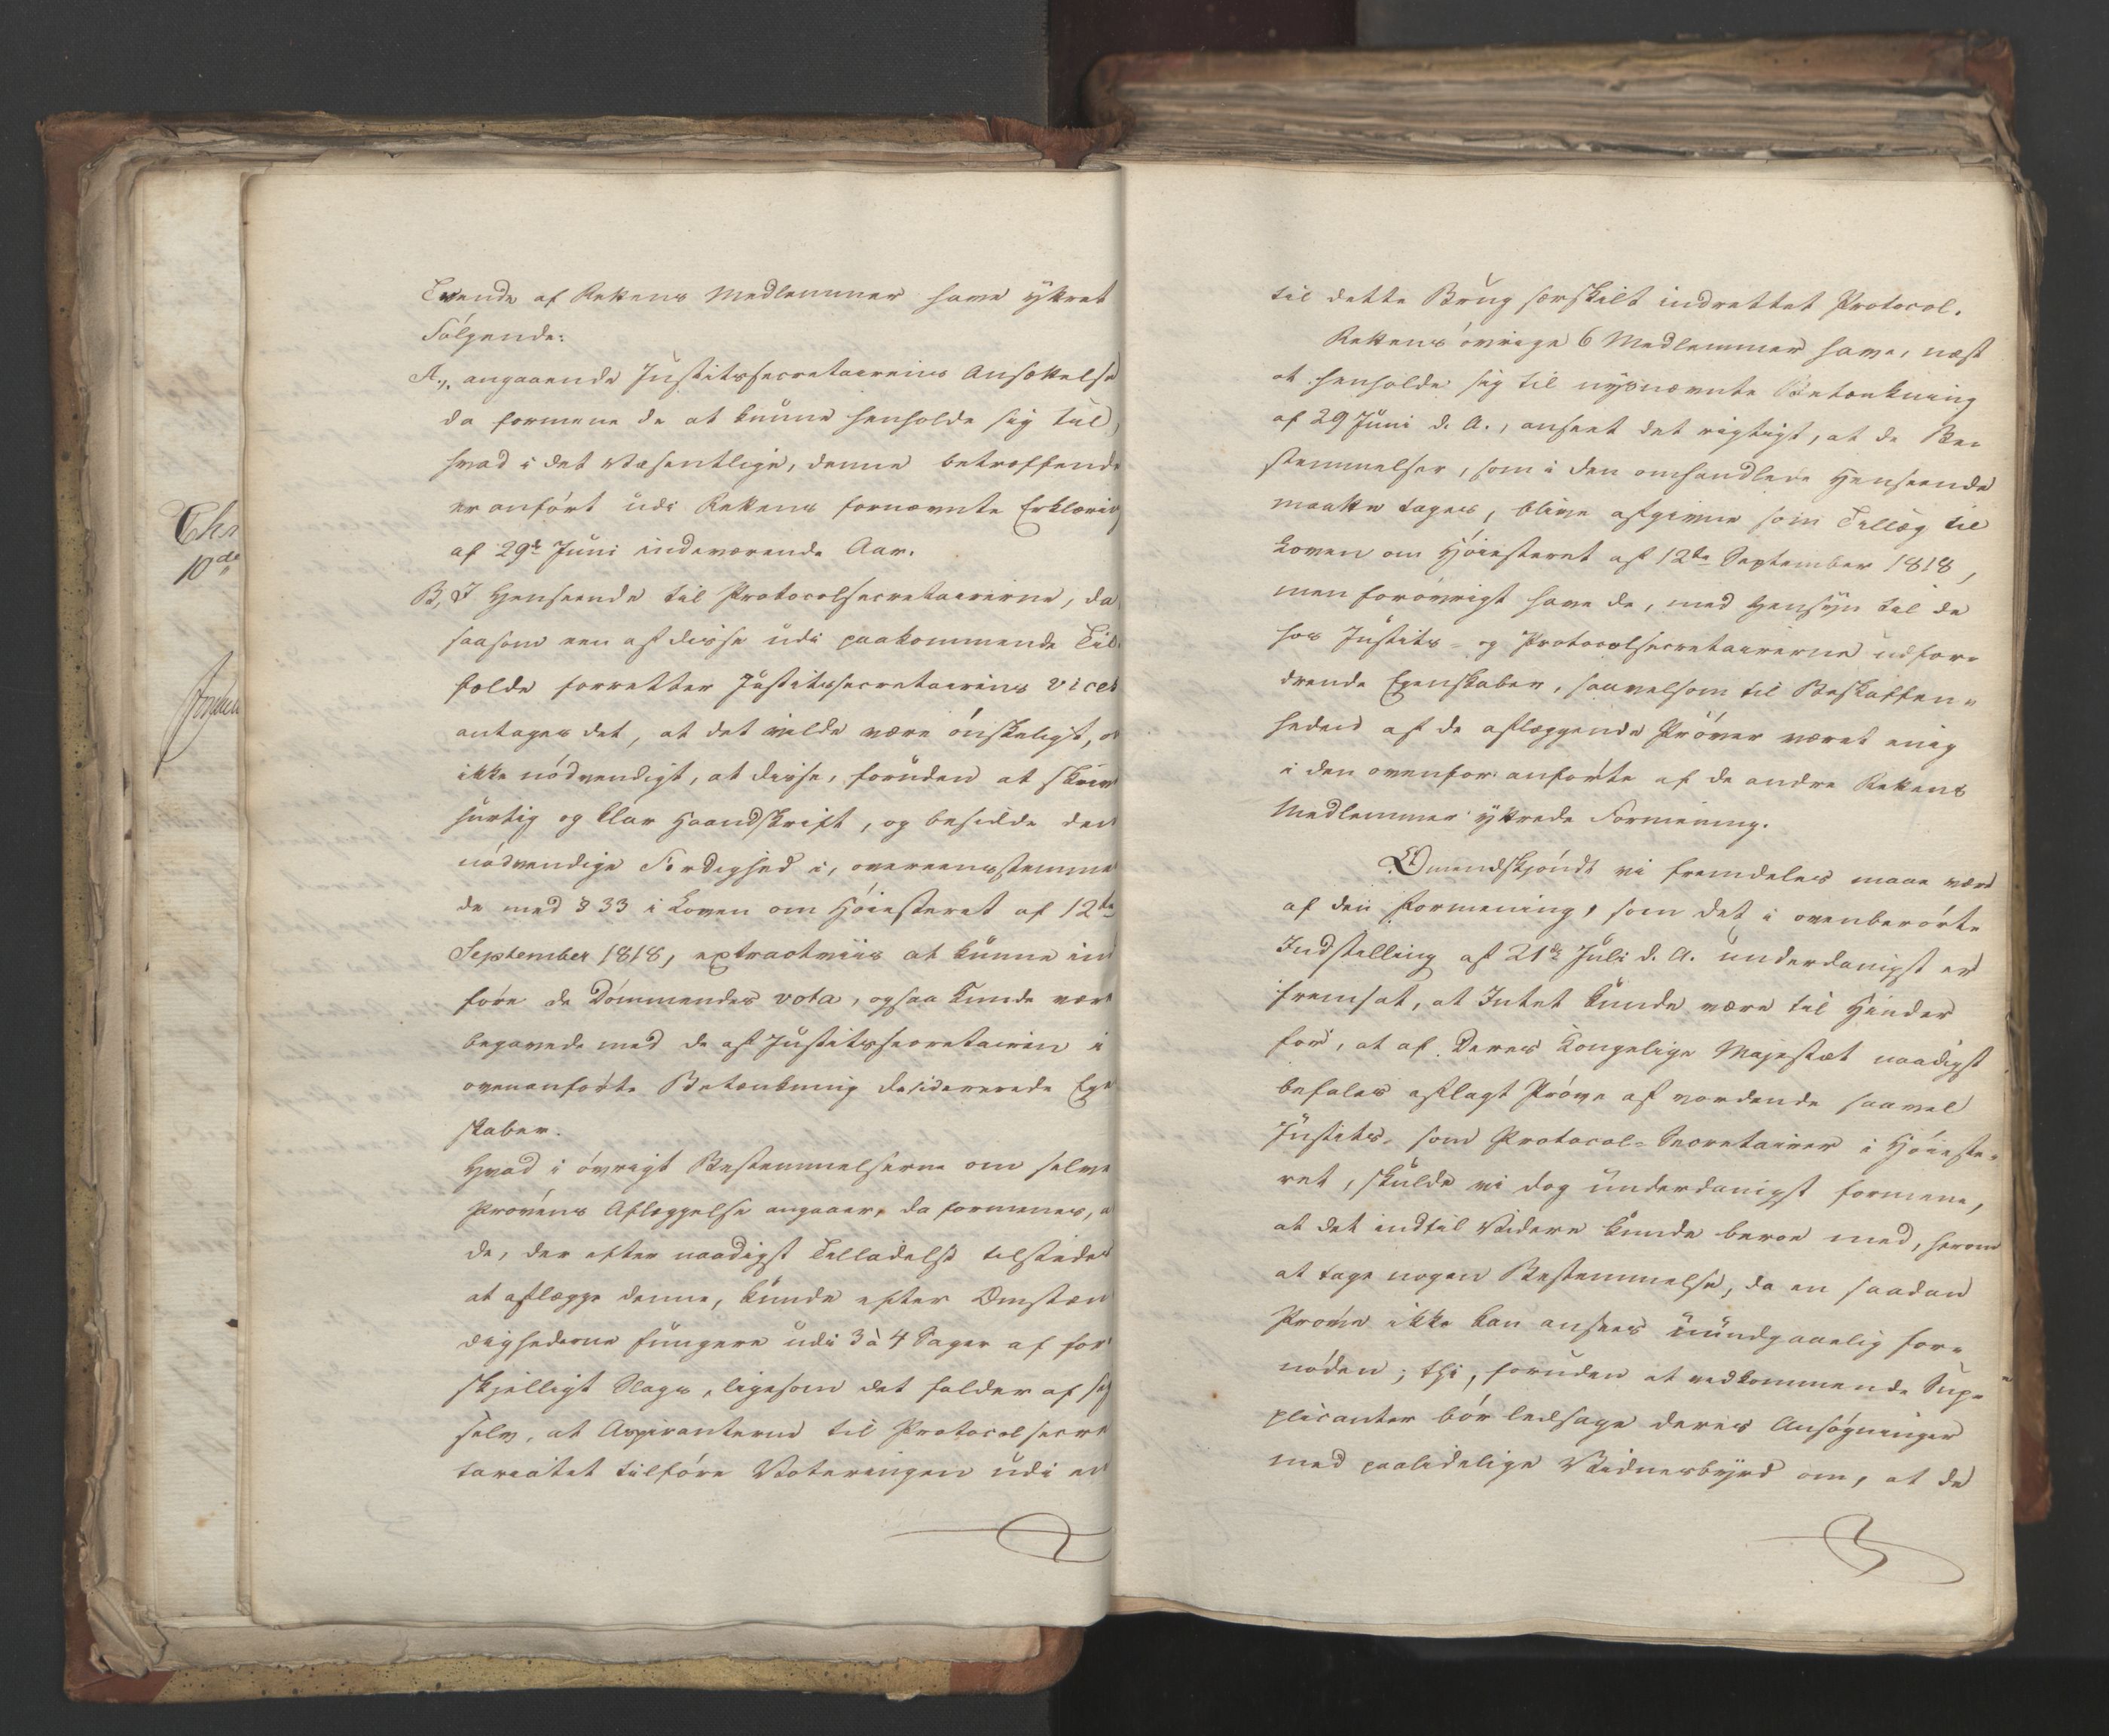 Tvende af Rettens Medlemmer have yttret
Følgende:
A., angaaende Justitssecretairens Ansættelse
da formene de at kunne henholde sig til,
hvad i det Væsentlige, denne betræffende
er anført udi Rettens fornævnte Erklæring
af 29de Juni indeværende Aar.
B, I Henseende til Protocolsecretairerne, da
saasom een af disse udi paakommende Til-
fælde forretter Justitssecretairens vices
antages det, at det vilde være ønskeligt, om
ikke nødvendigt, at disse, foruden at skrive
hurtig og klar Haandskrift, og besidde den
nødvendige Færdighed i, overeensstemmen
de med § 33 i Loven om Høiesteret af 12te
September 1818, extractviis at kunne ind
føre de Dømmendes vota, ogsaa kunde være
begavede med de af Justitssecretairen i
ovenanførte Betænkning desidererede Egen
skaber.
Hvad i øvrigt Bestemmelserne om selve
Prøvens Aflæggelse angaaer, da formenes, at
de, der efter naadigst Tilladelse tilstedes
at aflægge denne, kunde efter Omstæn
dighederne fungere udi 3 à 4 Sager af for
skjelligt Slags, ligesom det falder af sig
selv, at Aspiranterne til Protocolsecre
tariatet tilføre Voteringen udi en
til dette Brug særskilt indrettet Protocol.
Rettens øvrige 6 Medlemmer have, næst
at henholde sig til nysnævnte Betænkning
af 29 Juni d. A., anseet det rigtigt, at de Be-
stemmelser, som i den omhandlede Henseende
maatte tages, blive afgivne som Tillæg til
Loven om Høiesteret af 12te September 1818,
men forøvrigt have de, med Hensyn til de
hos Justits- og Protocolsecretairerne udfor-
drende Egenskaber, saavelsom til Beskaffen-
heden af de aflæggende Prøver været enig
i den ovenfor anførte af de andre Rettens
Medlemmer yttrede Formening.
Omendskjøndt vi fremdeles maae være
af den Formening, som det i ovenberørte
Indstilling af 21de Juli d. A. underdanigst er
fremsat, at Intet kunde være til Hinder
for, at af Deres Kongelige Majestæt naadigst
befales aflagt Prøve af vordende saavel
Justits- som Protocol-Secretairer i Høieste-
ret, skulde vi dog underdanigst formene,
at det indtil Videre kunde beroe med, herom
at tage nogen Bestemmelse, da en saadan
Prøve ikke kan ansees uundgaaelig for-
nøden; thi, foruden at vedkommende Sup-
plicanter bør ledsage deres Ansøgninger
med paalidelige Vidnesbyrd om, at de